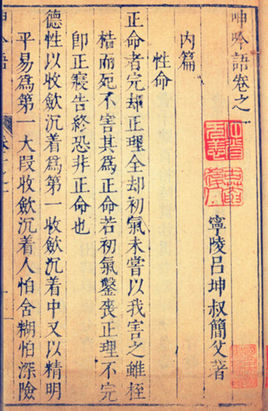 呻吟語卷之一
寧陵呂坤叔簡父著
內篇
性命
正命者完却正理全却初氣未嘗以我害之雖桎
梏而死不害其為正命若初氣鑿喪正理不完
即正寢告終恐非正命也
德性以收歛沉着為第一收歛沉着中又以精明
平易為第一大段收歛沉着人怕含糊怕深險